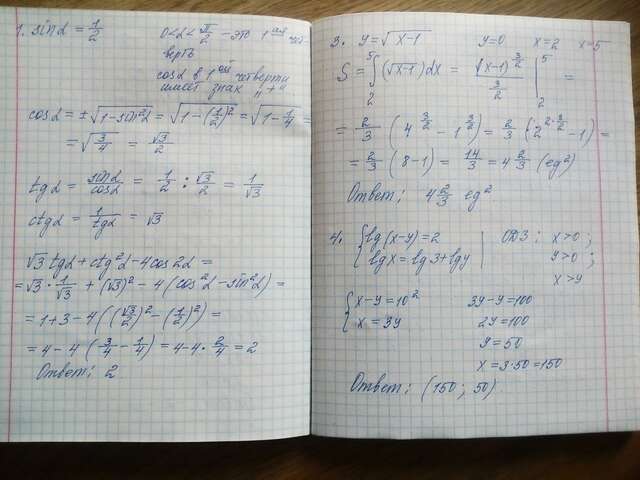 1. sinα = 1/2 0<α<π/2 - это 1ая чет-
верть
cosα в 1ой четверти
имеет знак "+"
cosα = ±√(1-sin²α) = √(1-(1/2)²) = √(1-1/4) =
= √(3/4) = √3/2
tgα = sinα/cosα = 1/2 : √3/2 = 1/√3
ctgα = 1/tgα = √3
√3 tgα + ctg²α - 4cos2α =
= √3 · 1/√3 + (√3)² - 4(cos²α - sin²α) =
= 1+3-4((√3/2)² - (1/2)²) =
= 4-4(3/4 - 1/4) = 4-4·2/4 = 2
Ответ: 2
3. y=√(x-1) y=0 x=2 x=5
S = ∫₂⁵ (√(x-1)) dx = (x-1)^(3/2) / (3/2) |₂⁵ =
= 2/3 (4^(3/2) - 1^(3/2)) = 2/3 (2^(2·3/2) - 1) =
= 2/3 (8-1) = 14/3 = 4 2/3 (ед²)
Ответ: 4 2/3 ед²
4. { lg(x-y) = 2 | ОДЗ: x>0;
{ lgx = lg3 + lgy | y>0;
x>y
{ x-y=10² 3y-y=100
{ x = 3y 2y=100
y=50
x=3·50=150
Ответ: (150; 50)